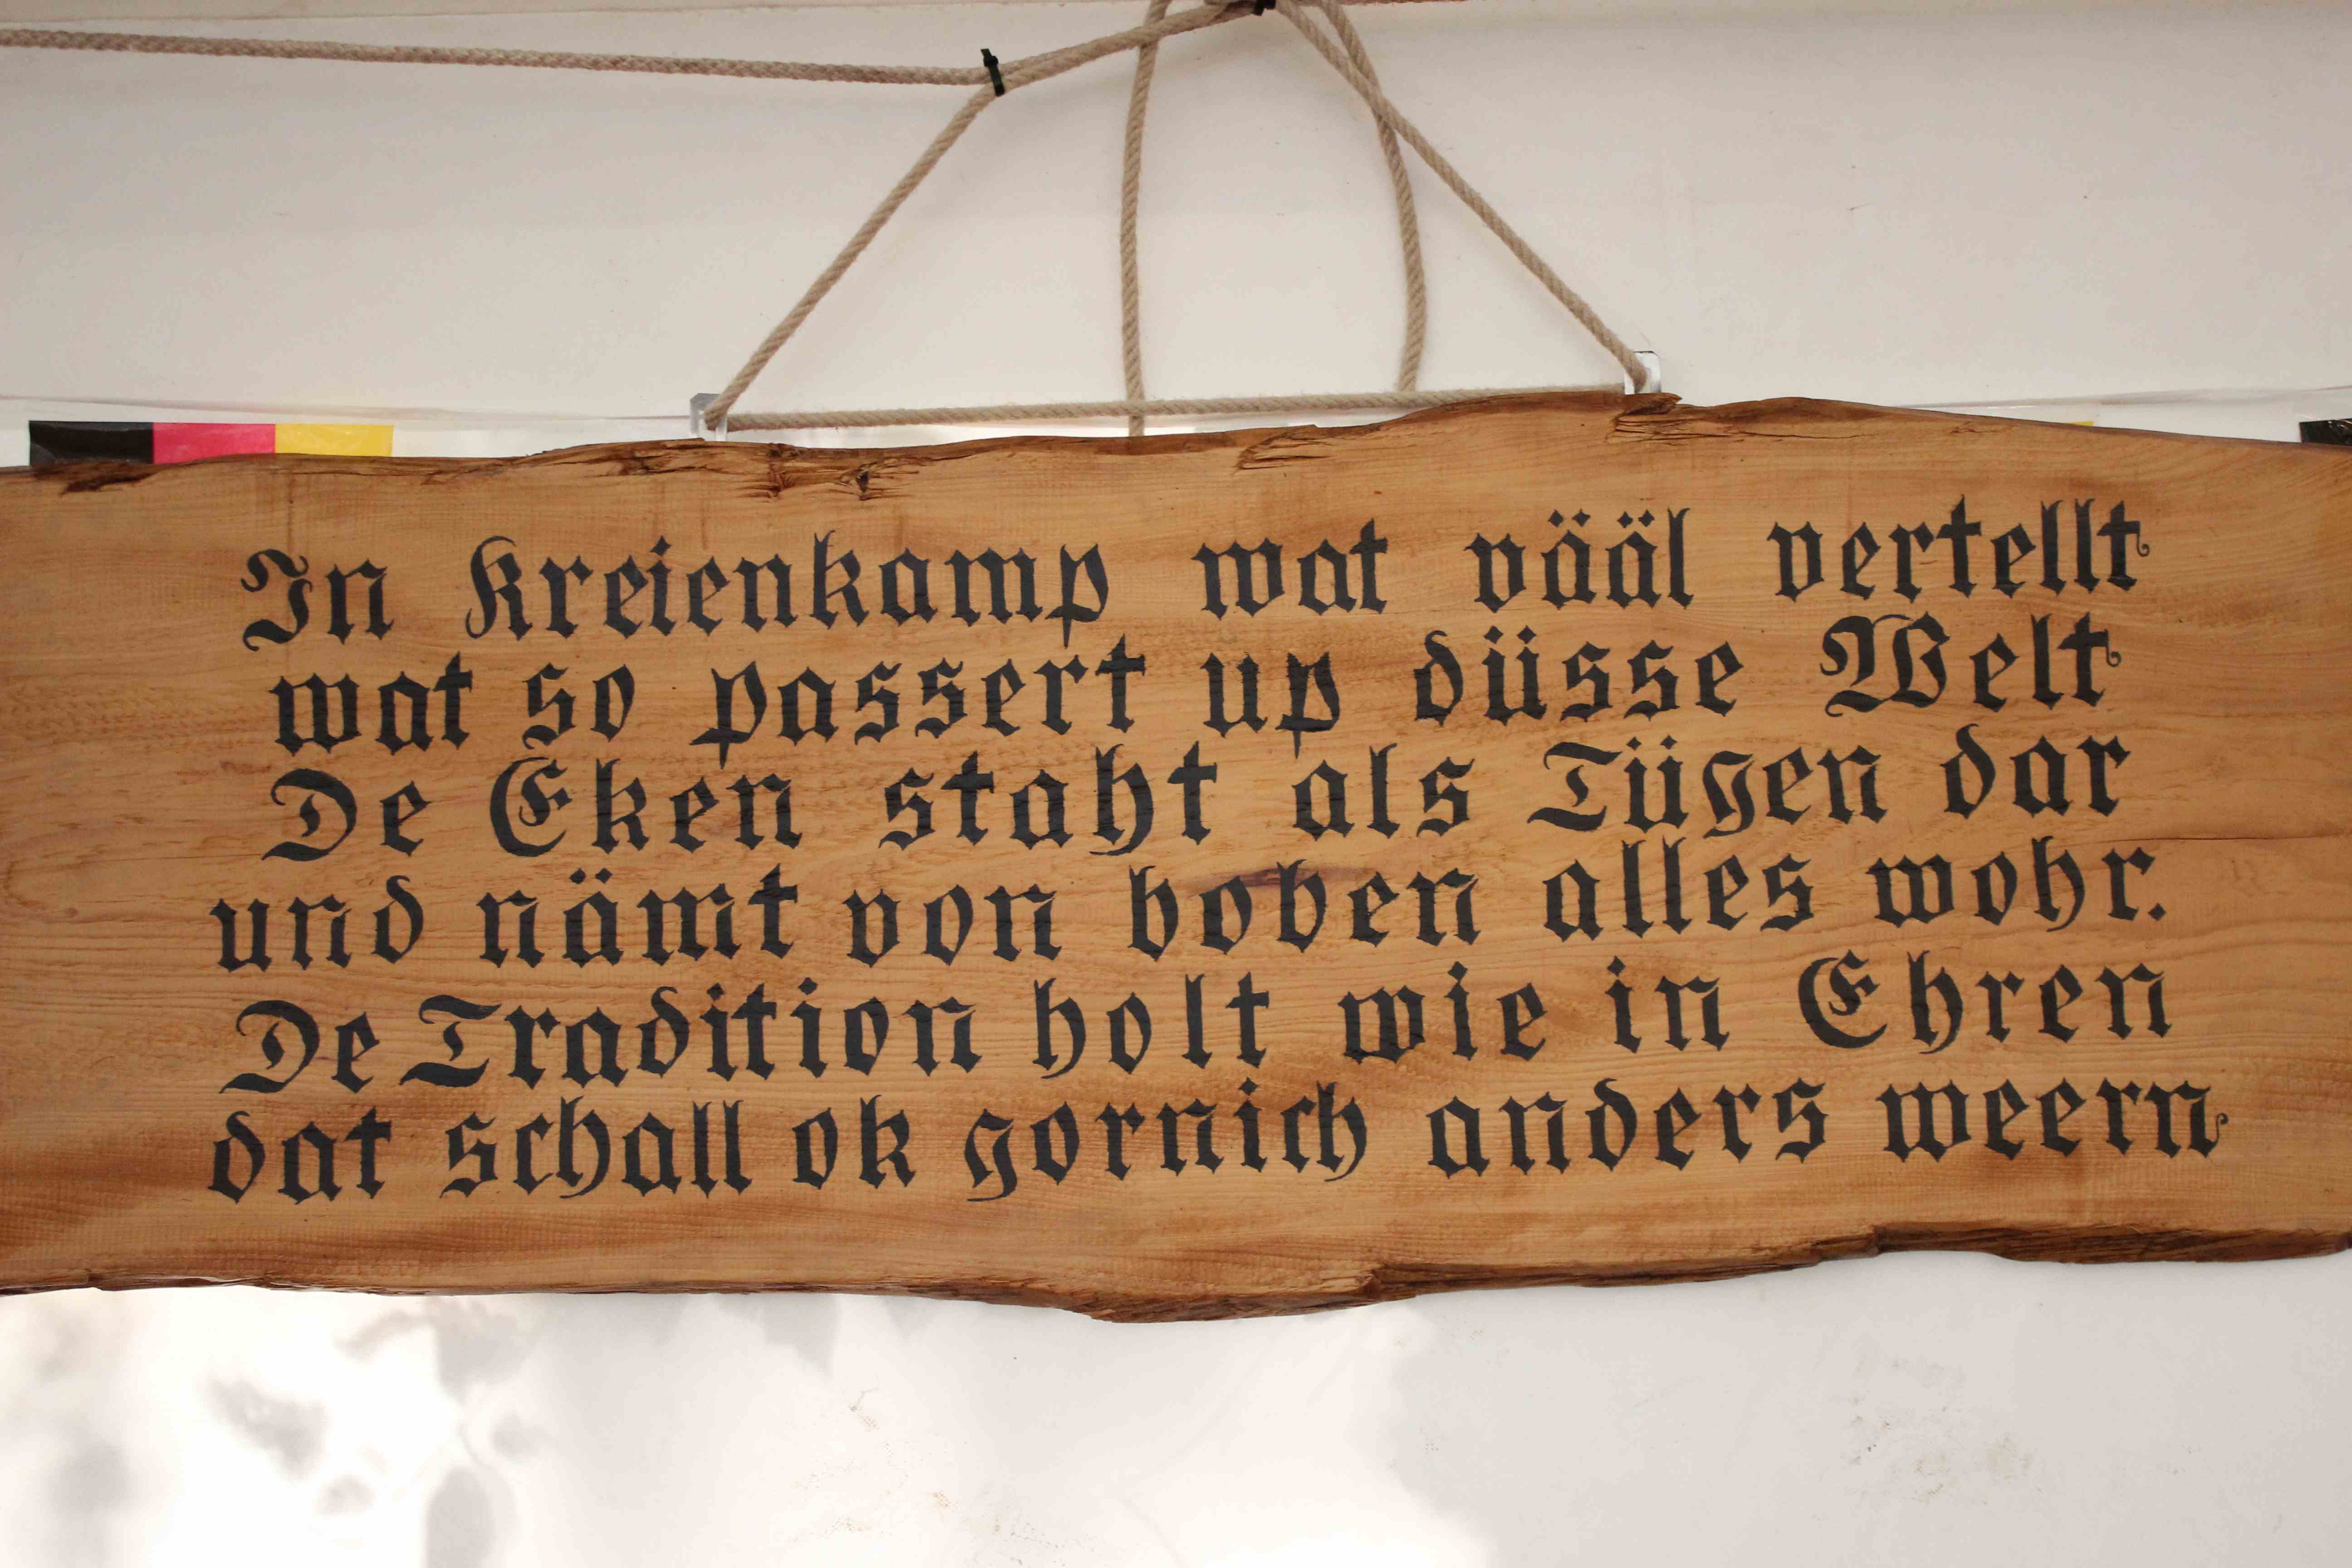 In Kreienkamp wat vääl vertellt
wat so passert up düsse Welt
De Eken staht als Tügen dar
und nämt von boben alles wohr.
De Tradition holt wie in Ehren
dat schall ok gornich anders weern